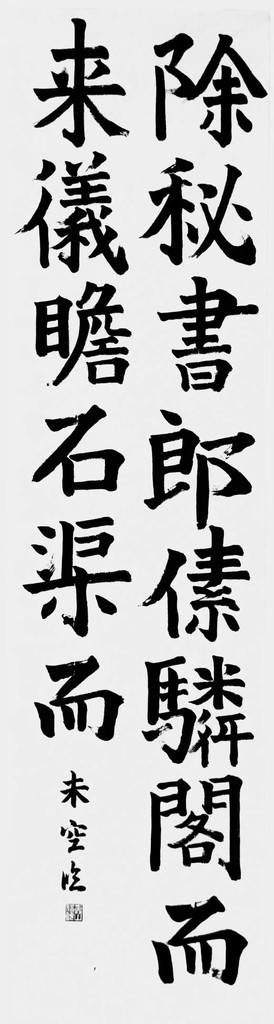 除秘書郎傃驎閣而
来儀瞻石渠而
未空臨